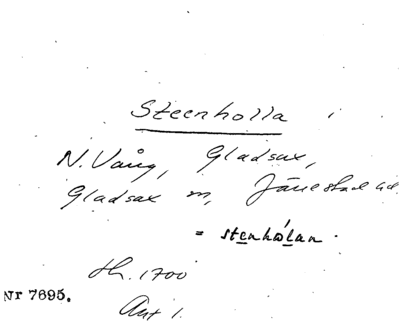 Steenholla i
N. Vång, Gladsax,
Gladsax sn, Järrestad hd.
= stenhólan.
Lh. 1700
Nr 7695.
Ant 1.